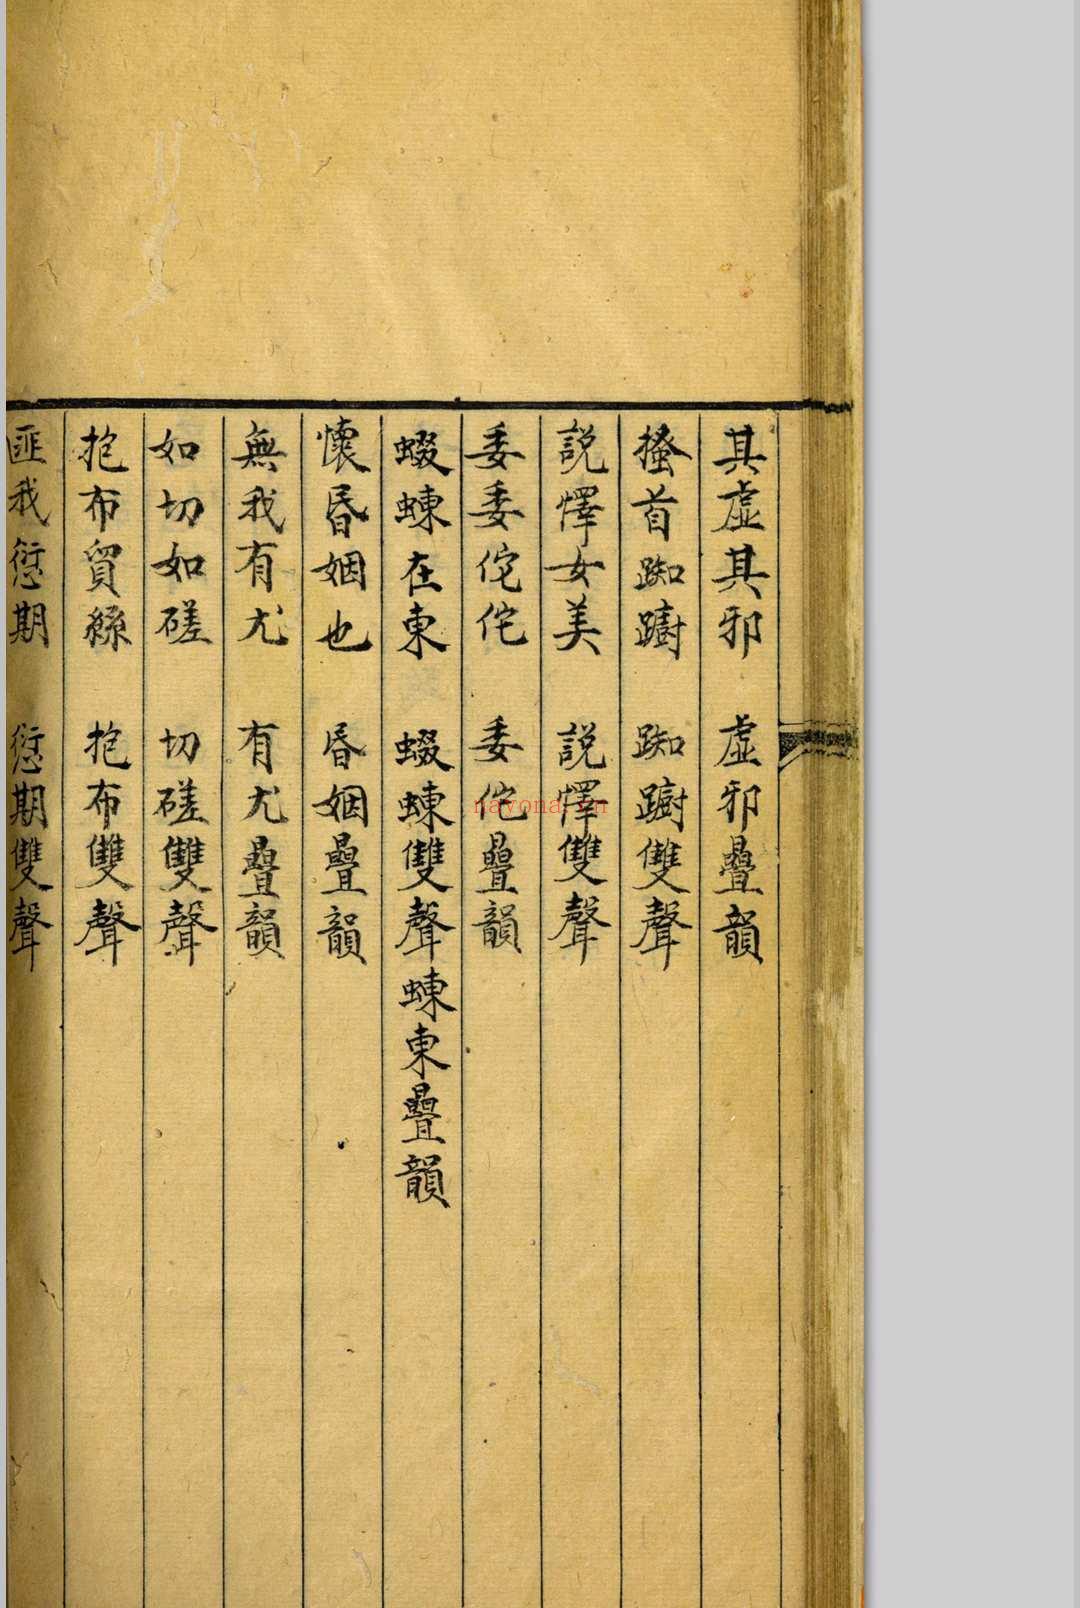 其虛其邪　虛邪疊韻
搔首踟躕　踟躕雙聲
說懌女美　說懌雙聲
委委佗佗　委佗疊韻
蝃蝀在東　蝃蝀雙聲蝀東疊韻
懷昏姻也　昏姻疊韻
無我有尤　有尤疊韻
如切如磋　切磋雙聲
抱布貿絲　抱布雙聲
匪我愆期　愆期雙聲
nayona.cn